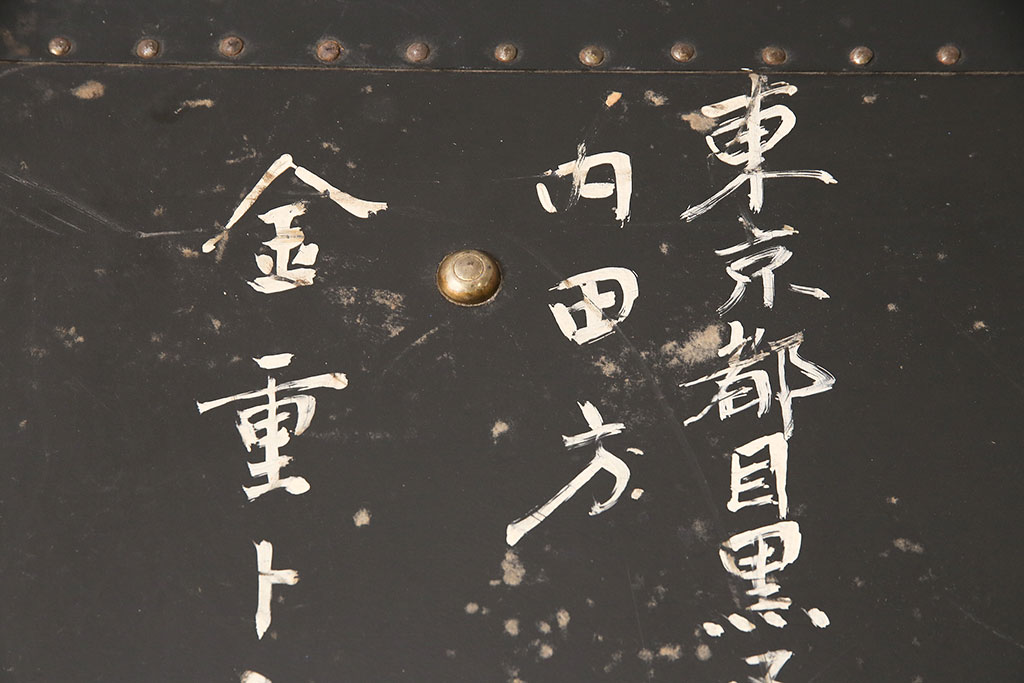 東京都目黒
内田方
金重ト